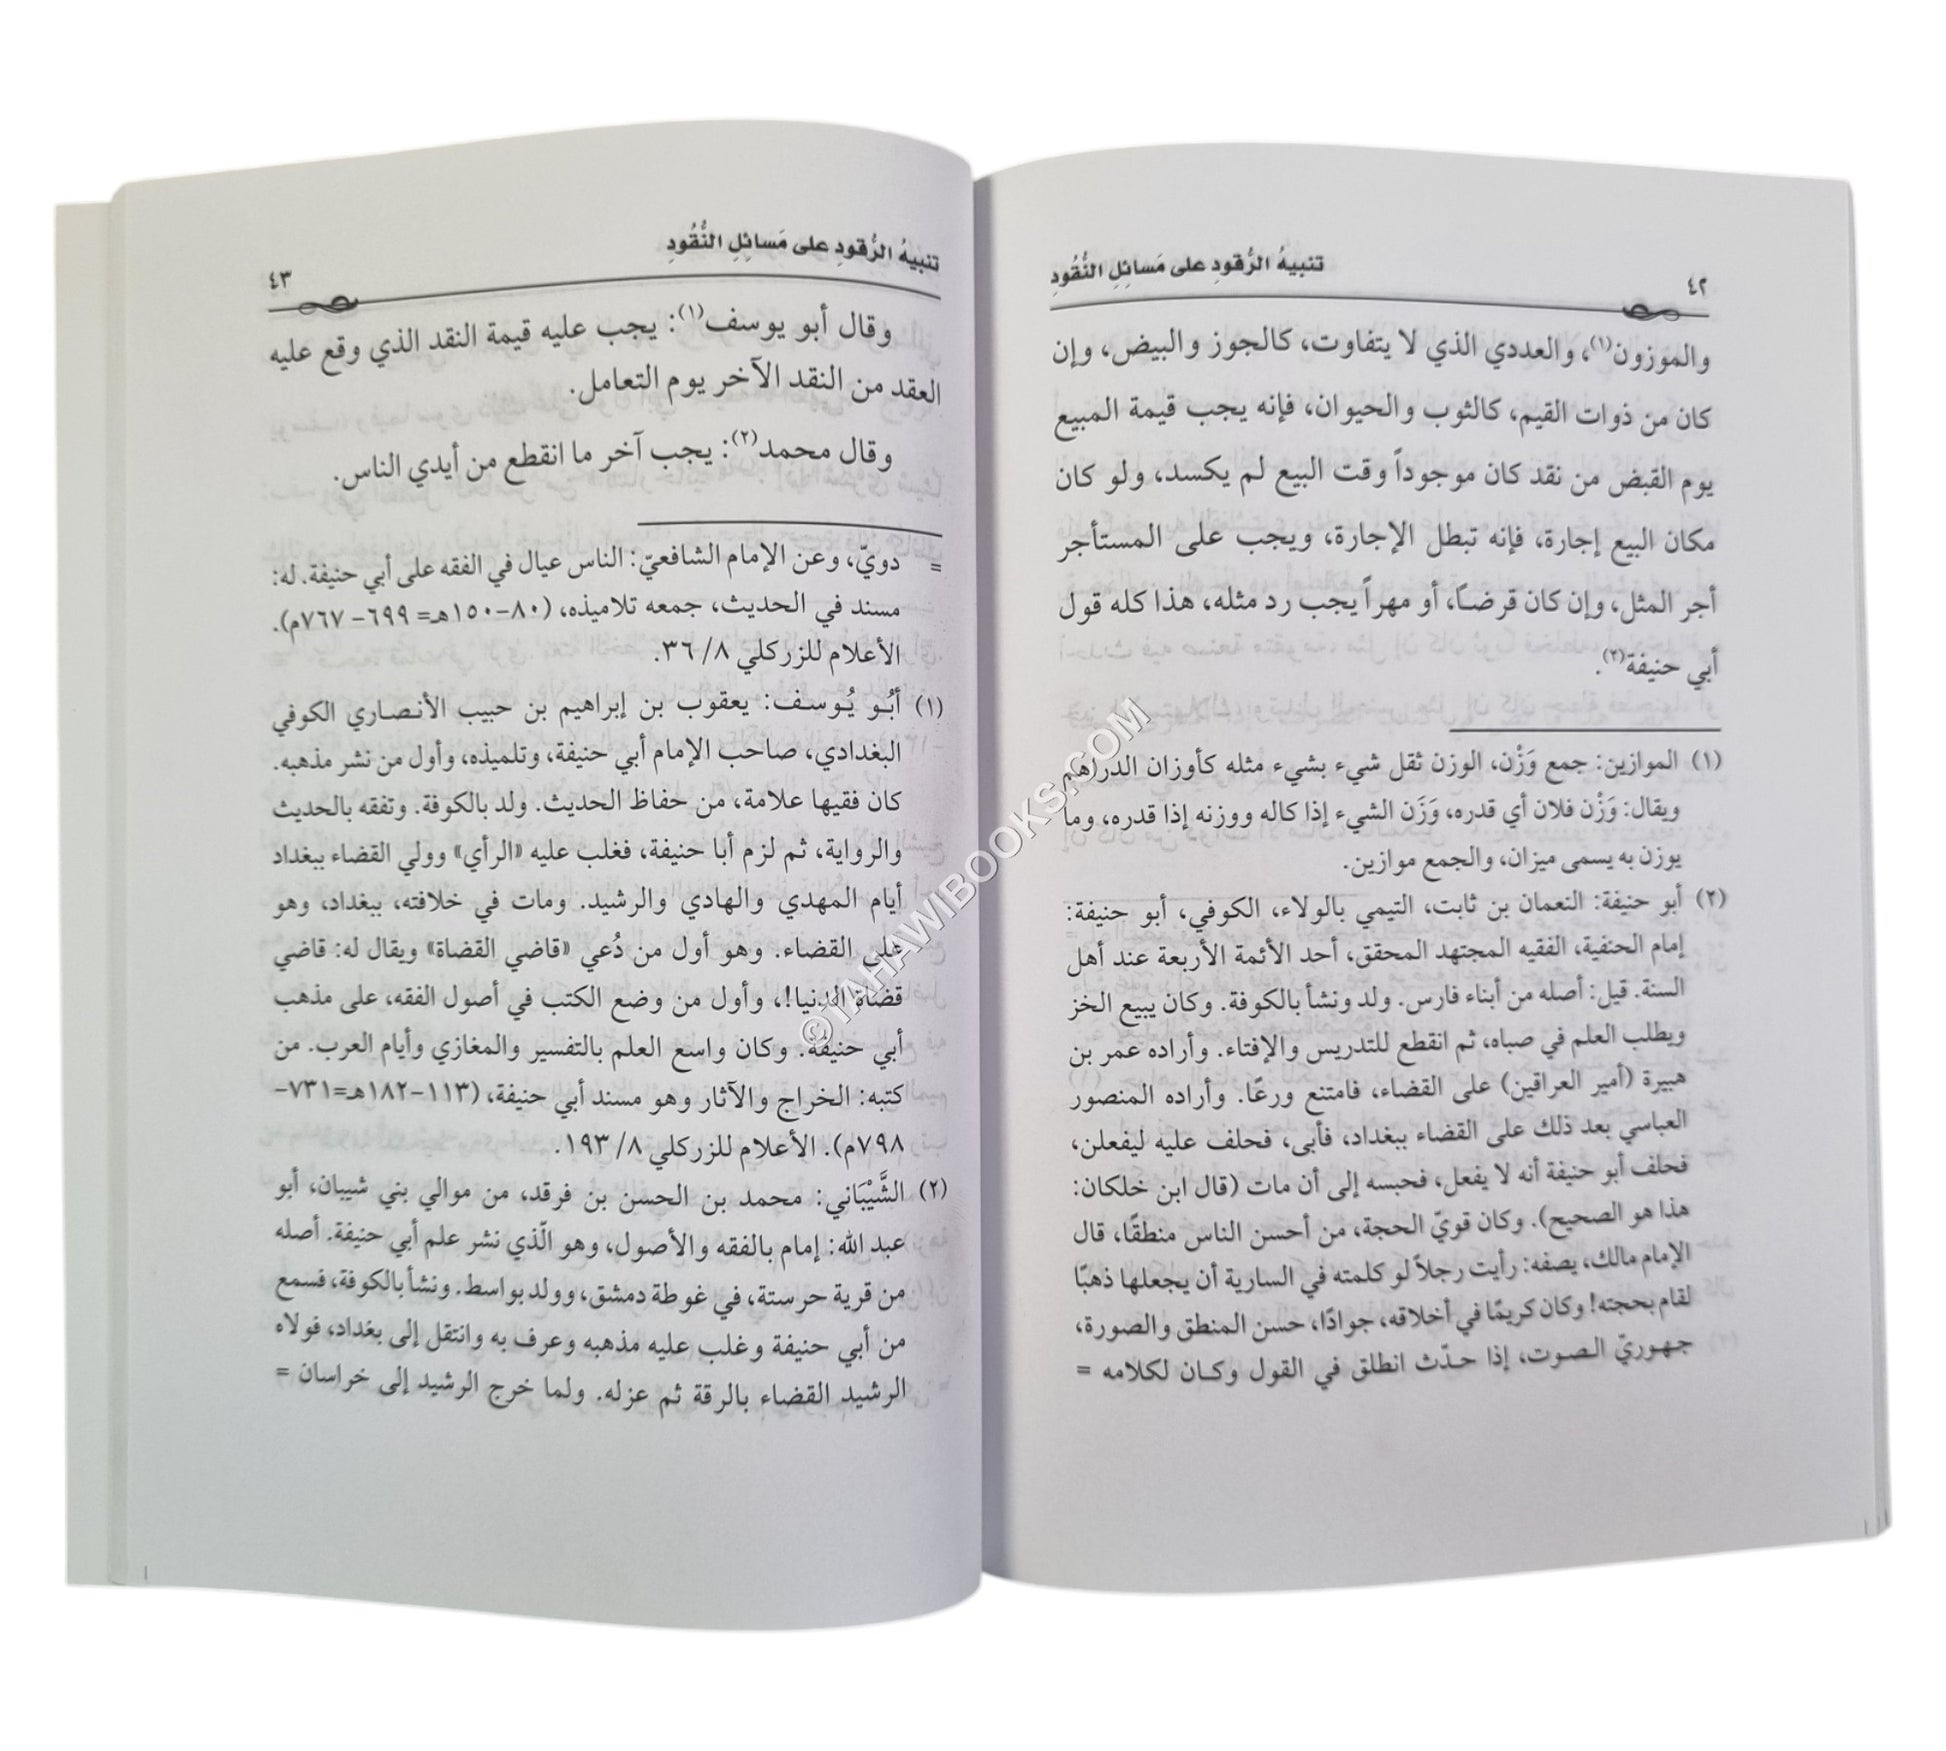 ٤٢
تنبيهُ الرُّقودِ على مَسائِلِ النُّقُودِ
والموزون(١)، والعددي الذي لا يتفاوت، كالجوز والبيض، وإن
كان من ذوات القيم، كالثوب والحيوان، فإنه يجب قيمة المبيع
يوم القبض من نقد كان موجوداً وقت البيع لم يكسد، ولو كان
مكان البيع إجارة، فإنه تبطل الإجارة، ويجب على المستأجر
أجر المثل، وإن كان قرضاً، أو مهراً يجب رد مثله، هذا كله قول
أبي حنيفة(٢).
(١) الموازين: جمع وَزْن، الوزن ثقل شيء بشيء مثله كأوزان الدراهم
ويقال: وَزْن فلان أي قدره، وَزَن الشيء إذا كاله ووزنه إذا قدره، وما
يوزن به يسمى ميزان، والجمع موازين.
(٢) أبو حنيفة: النعمان بن ثابت، التيمي بالولاء، الكوفي، أبو حنيفة:
إمام الحنفية، الفقيه المجتهد المحقق، أحد الأئمة الأربعة عند أهل
السنة. قيل: أصله من أبناء فارس. ولد ونشأ بالكوفة. وكان يبيع الخز
ويطلب العلم في صباه، ثم انقطع للتدريس والإفتاء. وأراده عمر بن
هبيرة (أمير العراقين) على القضاء، فامتنع ورعًا. وأراده المنصور
العباسي بعد ذلك على القضاء ببغداد، فأبى، فحلف عليه ليفعلن،
فحلف أبو حنيفة أنه لا يفعل، فحبسه إلى أن مات (قال ابن خلكان:
هذا هو الصحيح). وكان قويّ الحجة، من أحسن الناس منطقًا، قال
الإمام مالك، يصفه: رأيت رجلاً لو كلمته في السارية أن يجعلها ذهبًا
لقام بحجته! وكان كريمًا في أخلاقه، جوادًا، حسن المنطق والصورة،
جهوريّ الصوت، إذا حدّث انطلق في القول وكان لكلامه =
تنبيهُ الرُّقودِ على مَسائِلِ النُّقُودِ
٤٣
وقال أبو يوسف(١): يجب عليه قيمة النقد الذي وقع عليه
العقد من النقد الآخر يوم التعامل.
وقال محمد(٢): يجب آخر ما انقطع من أيدي الناس.
= دويّ، وعن الإمام الشافعيّ: الناس عيال في الفقه على أبي حنيفة. له:
مسند في الحديث، جمعه تلاميذه، (٨٠-١٥٠هـ= ٦٩٩- ٧٦٧م).
الأعلام للزركلي ٨/ ٣٦.
(١) أبُو يُوسف: يعقوب بن إبراهيم بن حبيب الأنصاري الكوفي
البغدادي، صاحب الإمام أبي حنيفة، وتلميذه، وأول من نشر مذهبه.
كان فقيها علامة، من حفاظ الحديث. ولد بالكوفة. وتفقه بالحديث
والرواية، ثم لزم أبا حنيفة، فغلب عليه «الرأي» وولي القضاء ببغداد
أيام المهدي والهادي والرشيد. ومات في خلافته، ببغداد، وهو
على القضاء. وهو أول من دُعي «قاضي القضاة» ويقال له: قاضي
قضاة الدنيا!، وأول من وضع الكتب في أصول الفقه، على مذهب
أبي حنيفة. وكان واسع العلم بالتفسير والمغازي وأيام العرب. من
كتبه: الخراج والآثار وهو مسند أبي حنيفة، (١١٣-١٨٢هـ=٧٣١-
٧٩٨م). الأعلام للزركلي ٨/ ١٩٣.
(٢) الشَّيْبَاني: محمد بن الحسن بن فرقد، من موالي بني شيبان، أبو
عبد الله: إمام بالفقه والأصول، وهو الّذي نشر علم أبي حنيفة. أصله
من قرية حرستة، في غوطة دمشق، وولد بواسط. ونشأ بالكوفة، فسمع
من أبي حنيفة وغلب عليه مذهبه وعرف به وانتقل إلى بغداد، فولاه
الرشيد القضاء بالرقة ثم عزله. ولما خرج الرشيد إلى خراسان =
©TAHAWIBOOKS.COM